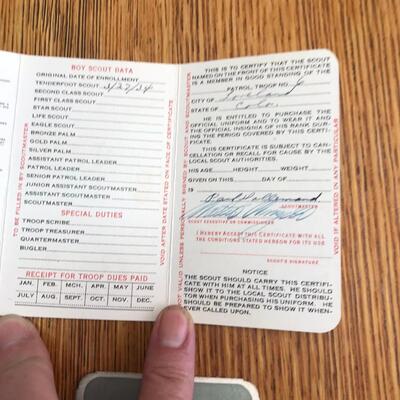 BOY SCOUT DATA
ORIGINAL DATE OF ENROLLMENT
TENDERFOOT SCOUT 3/27/34
SECOND CLASS SCOUT
FIRST CLASS SCOUT
STAR SCOUT
LIFE SCOUT
EAGLE SCOUT
BRONZE PALM
GOLD PALM
SILVER PALM
ASSISTANT PATROL LEADER
PATROL LEADER
SENIOR PATROL LEADER
JUNIOR ASSISTANT SCOUTMASTER
ASSISTANT SCOUTMASTER
SPECIAL DUTIES
TROOP SCRIBE
TROOP TREASURER
QUARTERMASTER
BUGLER
RECEIPT FOR TROOP DUES PAID
JAN. FEB. MCH. APR. MAY JUNE
JULY AUG. SEPT. OCT. NOV. DEC.
TO BE FILLED IN BY SCOUTMASTER
VOID AFTER DATE STATED ON FACE OF CERTIFICATE
NOT VALID UNLESS PERSONALLY SIGNED BY SCOUTMASTER
THIS IS TO CERTIFY THAT THE SCOUT
NAMED ON THE FRONT OF THIS CERTIFICATE
IS A MEMBER IN GOOD STANDING OF THE
PATROL, TROOP NO.
CITY OF Loveland
STATE OF Colo.
HE IS ENTITLED TO PURCHASE THE
OFFICIAL UNIFORM AND TO WEAR IT AND
THE OFFICIAL INSIGNIA OF HIS RANK DUR-
ING THE PERIOD COVERED BY THIS CERTIFI-
CATE.
THIS CERTIFICATE IS SUBJECT TO CAN-
CELLATION OR RECALL FOR CAUSE BY THE
LOCAL SCOUT AUTHORITIES.
HIS AGE IS HEIGHT WEIGHT
GIVEN ON THIS DAY OF
19
SCOUTMASTER
SCOUT EXECUTIVE OR COMMISSIONER
I HEREBY ACCEPT THIS CERTIFICATE WITH ALL
THE CONDITIONS STATED HEREON FOR ITS USE
SCOUT'S SIGNATURE
NOTICE
THE SCOUT SHOULD CARRY THIS CERTIFI-
CATE WITH HIM AT ALL TIMES. HE SHOULD
SHOW IT TO THE LOCAL SCOUT DISTRIBU-
TOR WHEN PURCHASING HIS UNIFORM. HE
SHOULD BE PREPARED TO SHOW IT WHEN-
EVER CALLED UPON.
VOID IF ALTERED IN ANY PARTICULAR